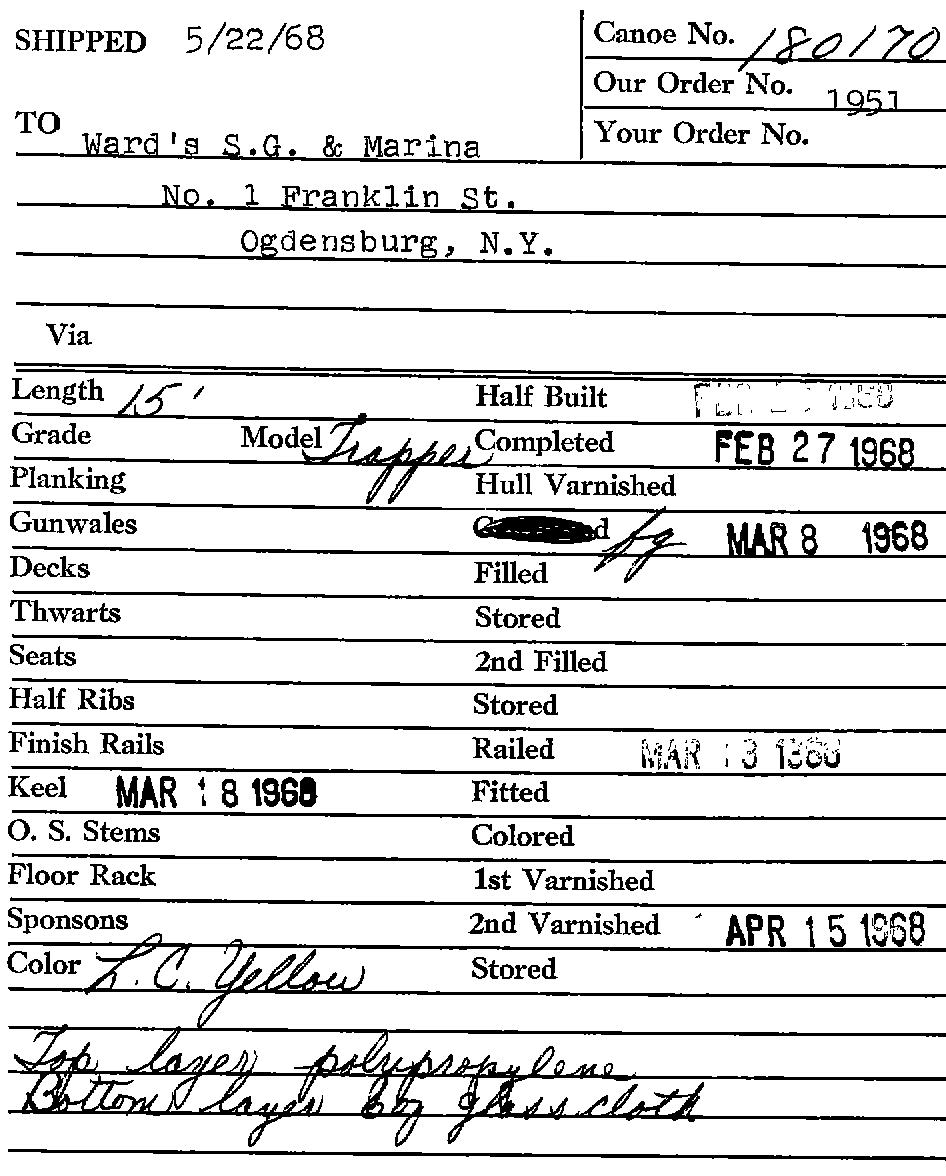 SHIPPED 5/22/68
Canoe No. 180170
Our Order No. 1951
Your Order No.
TO Ward's S.G. & Marina
No. 1 Franklin St.
Ogdensburg, N.Y.
Via
Length 15' Half Built FEB 1968
Grade Model Trapper Completed FEB 27 1968
Planking Hull Varnished
Gunwales fg MAR 8 1968
Decks Filled
Thwarts Stored
Seats 2nd Filled
Half Ribs Stored
Finish Rails Railed MAR 13 1968
Keel MAR 18 1968 Fitted
O. S. Stems Colored
Floor Rack 1st Varnished
Sponsons 2nd Varnished APR 15 1968
Color L.C. Yellow Stored
Top layer polypropylene
Bottom layer 6 oz glass cloth